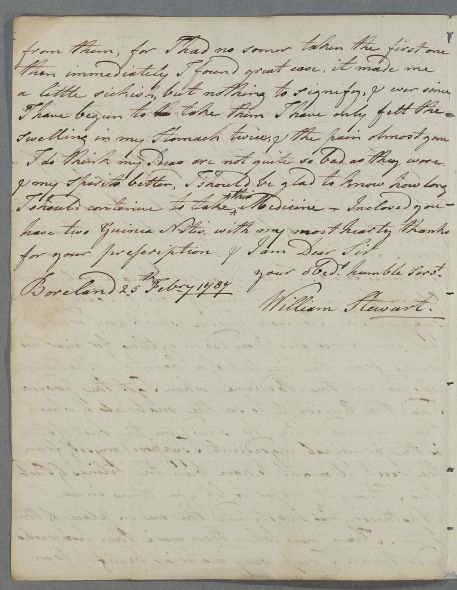 from them, for I had no sooner taken the first one
then immediately I found great ease, it made me
a little sickish, but nothing to signify, & ever since
I have begun to take them I have only felt the
swelling in my Stomach twice, & the pain almost gone
I do think my are not quite so bad as they were
& my spirits better, I should be glad to know how long
I should continue to take this Medicine – Inclosed you
have two Guinea Notes with my most hearty thanks
for your prescription & I am Dear Sir
your obedt. humble Servt.
Boreland 25th Febry 1787
William Stewart.